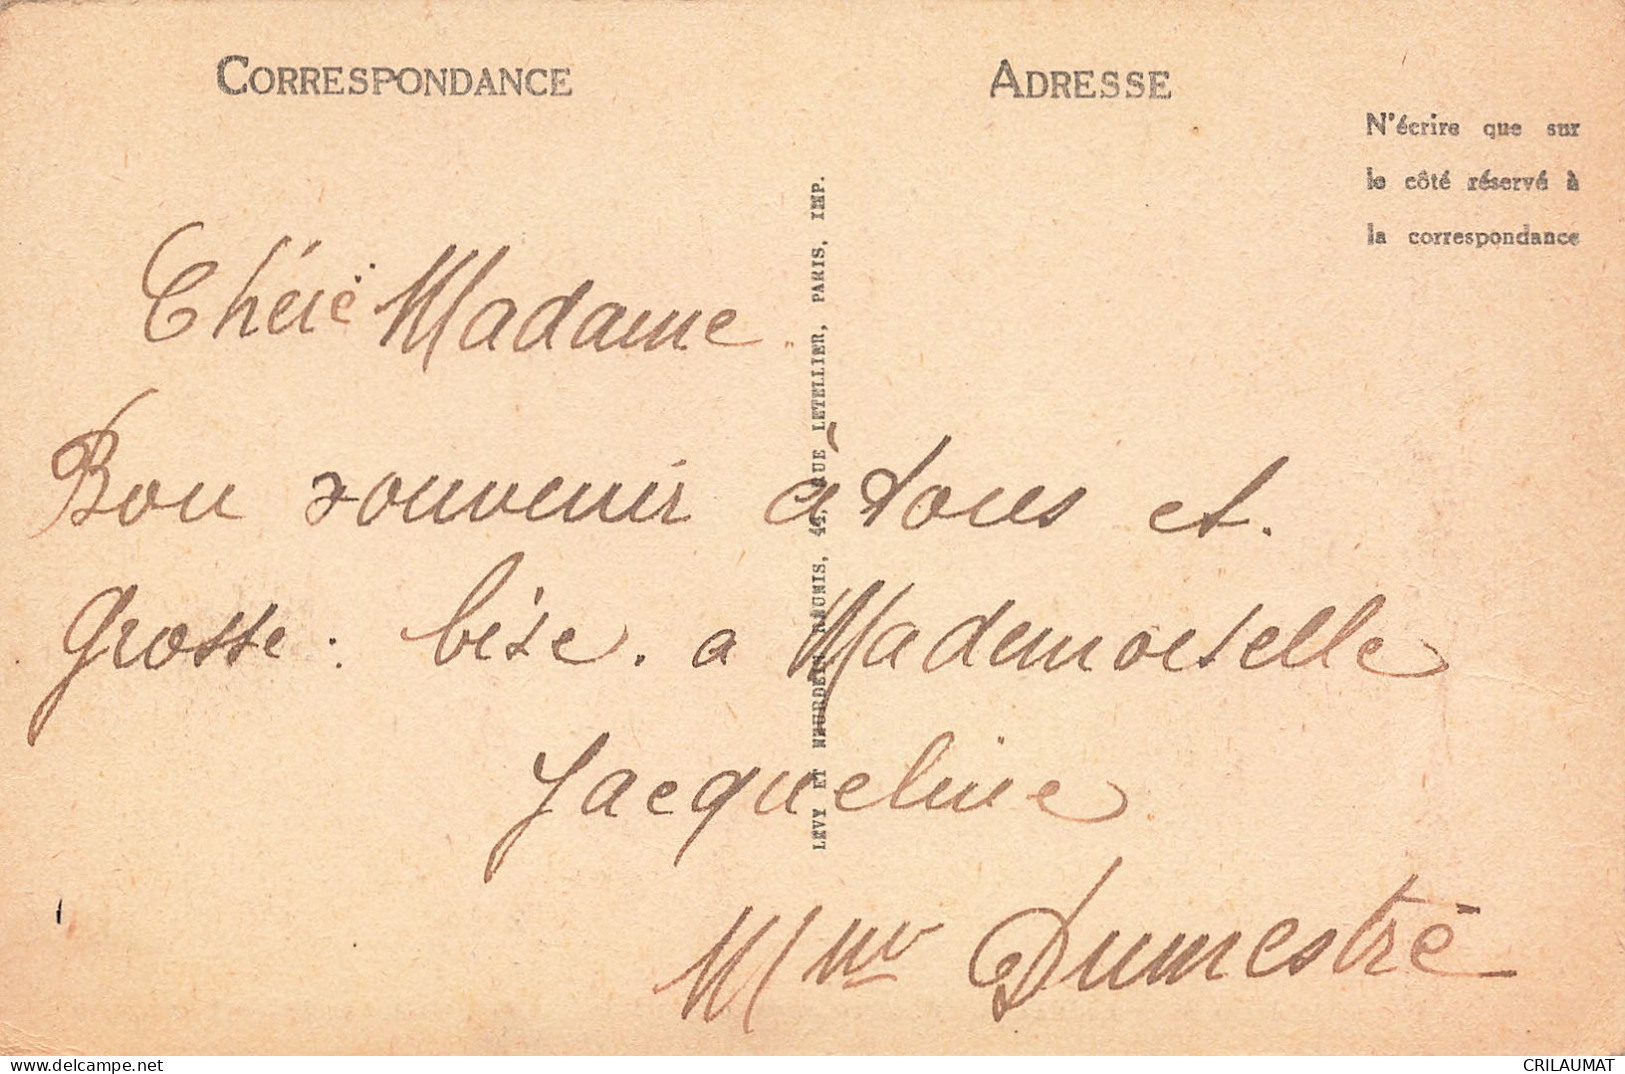 CORRESPONDANCE
ADRESSE
N'écrire que sur
le côté réservé à
la correspondance
Chérie Madame.
Bon souvenir à tous et.
Grosse : bise. a Mademoiselle
Jacqueline
Mme Dumestre
LEVY ET NEURDEIN RÉUNIS, 44, RUE LETELLIER, PARIS, IMP.
www.delcampe.net
CRILAUMAT